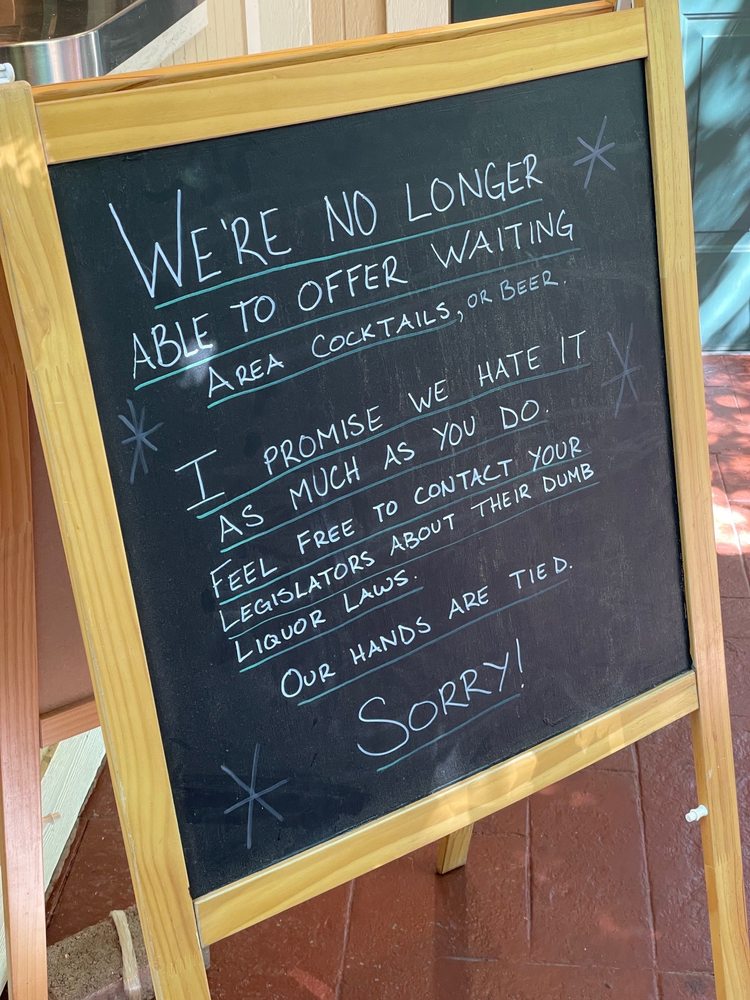 WE'RE NO LONGER
ABLE TO OFFER WAITING
AREA COCKTAILS, OR BEER.
I PROMISE WE HATE IT
AS MUCH AS YOU DO.
FEEL FREE TO CONTACT YOUR
LEGISLATORS ABOUT THEIR DUMB
LIQUOR LAWS.
OUR HANDS ARE TIED.
SORRY!